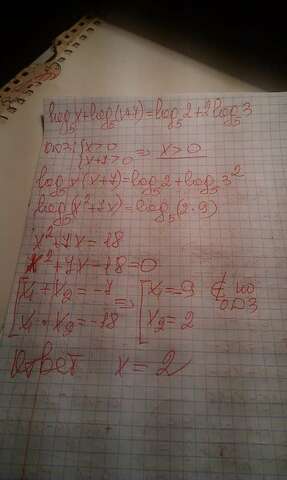 log₅x+log₅(x+7)=log₅2+2log₅3
ОДЗ: {x>0 x+7>0 => x>0
log₅x(x+7)=log₅2+log₅3²
log₅(x²+7x)=log₅(2·9)
x²+7x=18
x²+7x-18=0
[x₁+x₂=-7 => [x₁=-9 ∉ по ОДЗ
x₁·x₂=-18 x₂=2
Ответ x=2